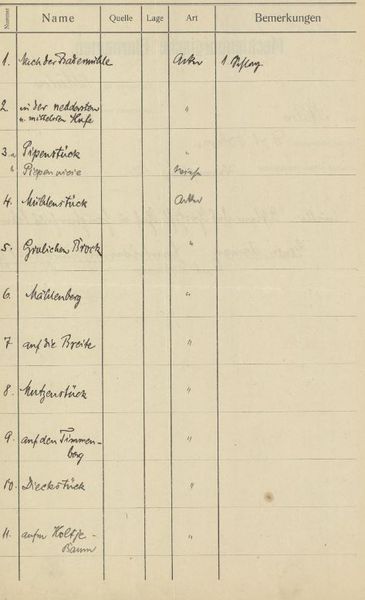 Nummer Name Quelle Lage Art Bemerkungen
1. Nach der Bademühle Acker 1.
2 in der neddersten "
u. mittelsten Hufe
3 a Pipenstück "
b Piepenwiese Wiese
4. Mühlenstück Acker
5. Grolichen Brock "
6. Mählenberg "
7 auf die Breite "
8. Mutzenstück "
9. auf den Timmen- "
berg
10. Dieckstück "
11. aufm Holtje- "
Baum